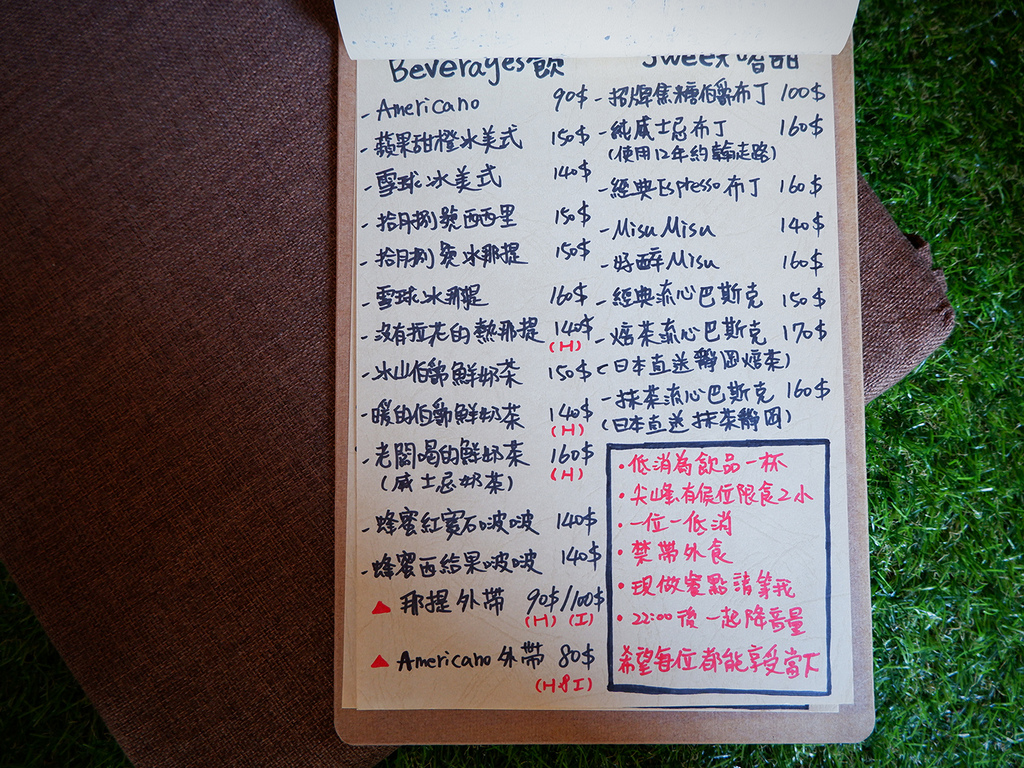 Beverages飲
- Americano 90$
- 蘋果甜橙冰美式 150$
- 雪球冰美式 140$
- 拾月捌號西西里 150$
- 拾月捌號冰那提 150$
- 雪球冰那提 160$
- 沒有拉花的熱那提 140$
(H)
- 冰山伯爵鮮奶茶 150$
- 暖的伯爵鮮奶茶 140$
(H)
- 老闆喝的鮮奶茶 160$
(威士忌奶茶) (H)
- 蜂蜜紅寶石啵啵 140$
- 蜂蜜西結果啵啵 140$
▲ 那提外帶 90$/100$
(H) (I)
▲ Americano外帶 80$
(H&I)
Sweet 嗜甜
- 招牌焦糖伯爵布丁 100$
- 純威士忌布丁 160$
(使用12年約翰走路)
- 經典Espresso布丁 160$
- Misu Misu 140$
- 好醉Misu 160$
- 經典流心巴斯克 150$
- 焙茶流心巴斯克 170$
(日本直送靜岡焙茶)
- 抹茶流心巴斯克 160$
(日本直送抹茶靜岡)
•低消為飲品一杯
•尖峰有候位限食2小
•一位一低消
•禁帶外食
•現做餐點請等我
•22:00後一起降音量
希望每位都能享受當下